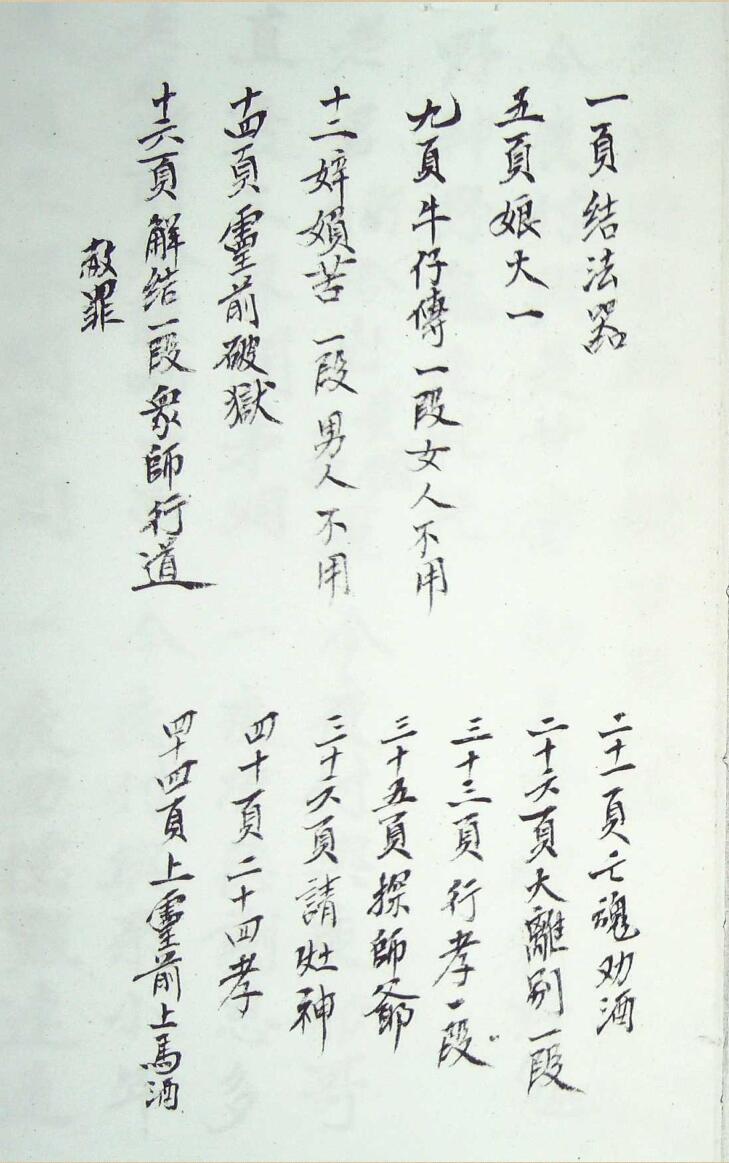 一頁結法器
五頁娘大一
九頁牛仔傳一段女人不用
十二娘苦一段男人不用
十四頁靈前破獄
十六頁解結一段衆師行道
赦罪
二十一頁亡魂劝酒
二十六頁大離别一段
三十三頁行孝一段
三十五頁探師爺
三十六頁請灶神
四十頁二十四孝
四十四頁上靈前上馬酒